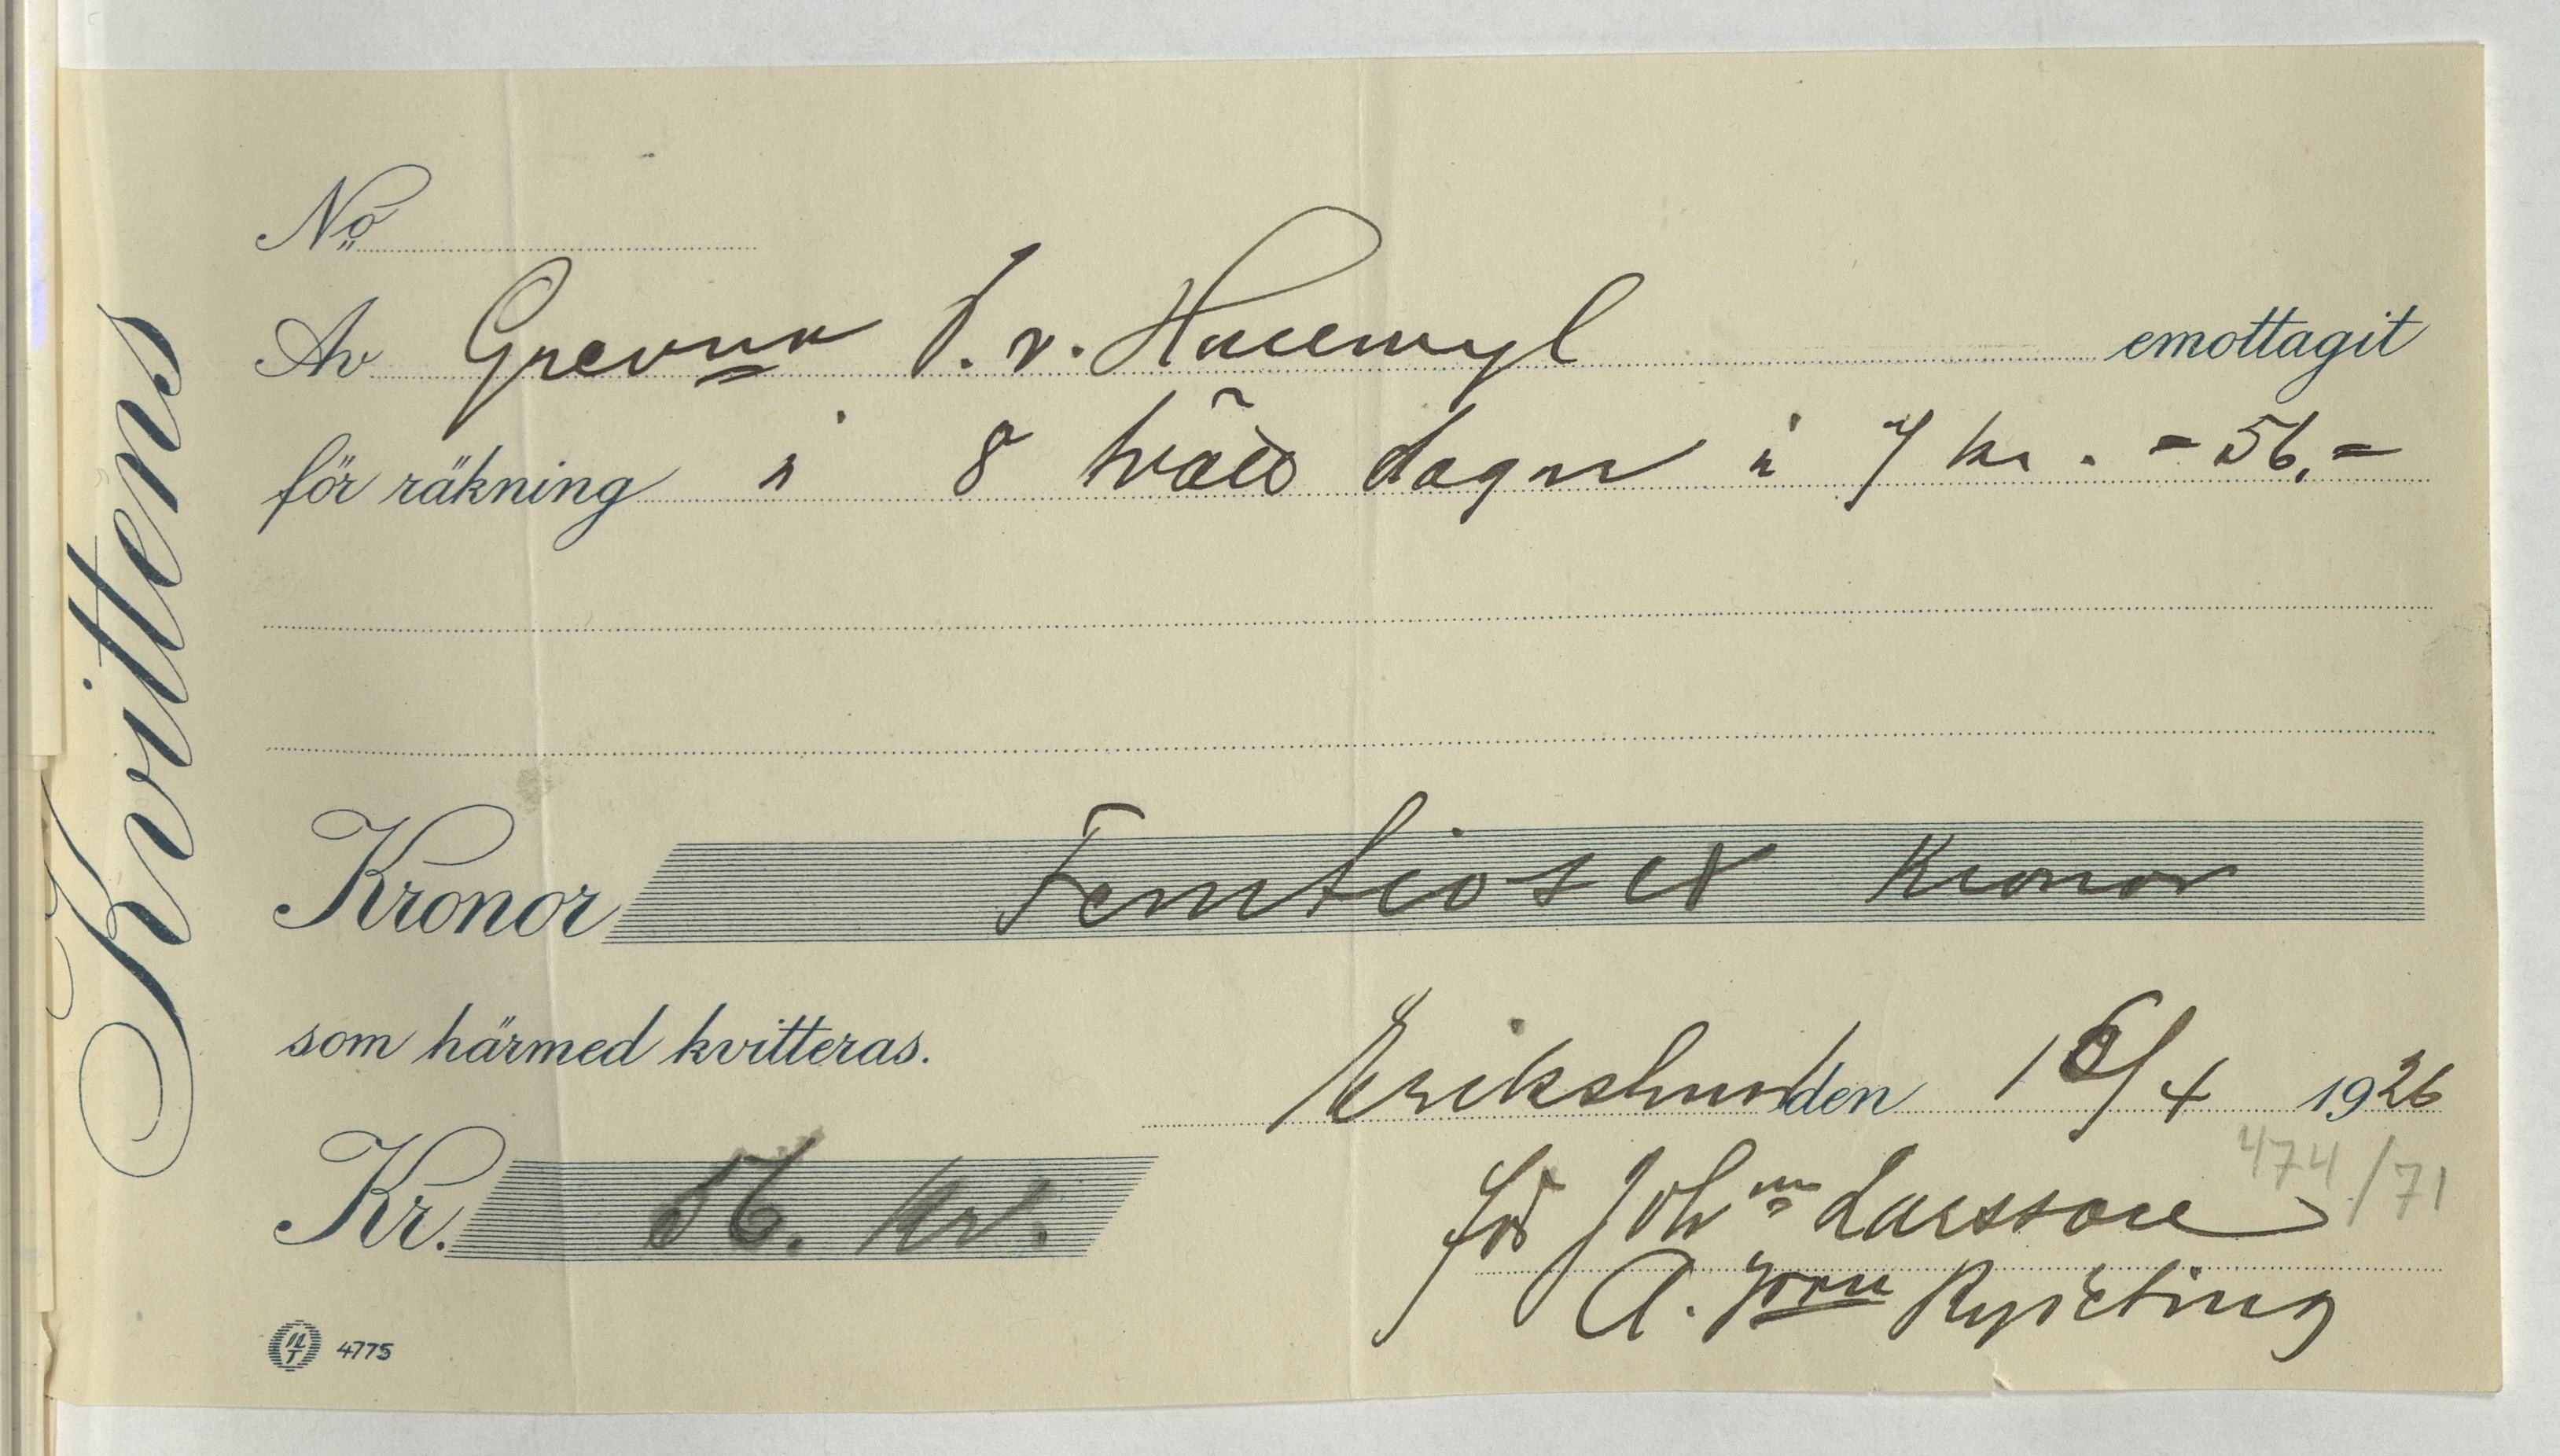 Kvittens
No
Av Grevnn W. v. Hallwyl emottagit
för räkning à 8 tvätt dagar à 7 kr. = 56.=
Kronor Femtiosex Kronor
som härmed kvitteras.
Erikslund den 16/4 1926
Kr. 56. kr.
för Joh:n Larsson
474/71
A.
4775